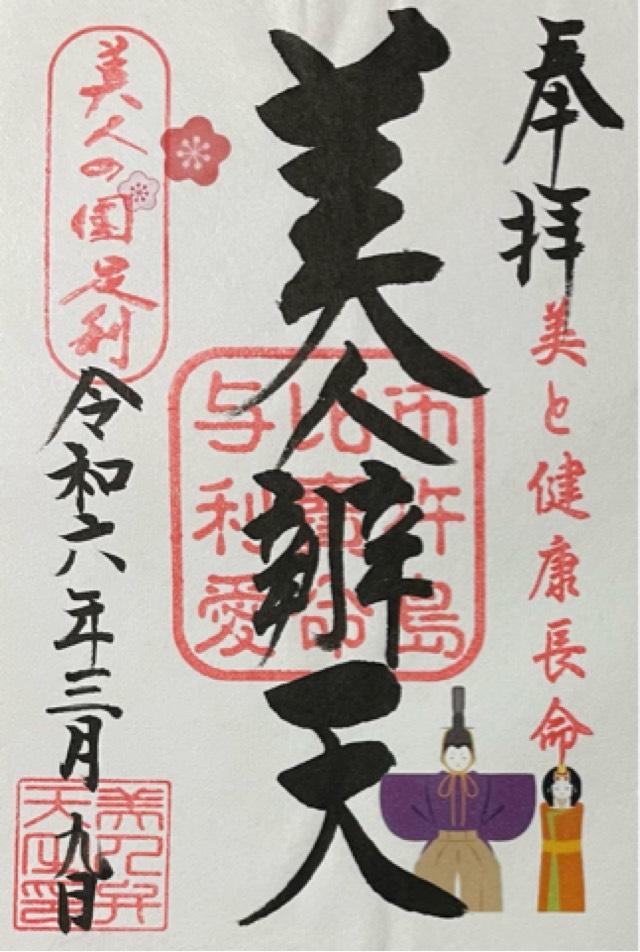 奉拝
美と健康長命
美人辨天
市杵島
比賣命
与利愛
美人の国足利
令和六年三月九日
美人弁
天